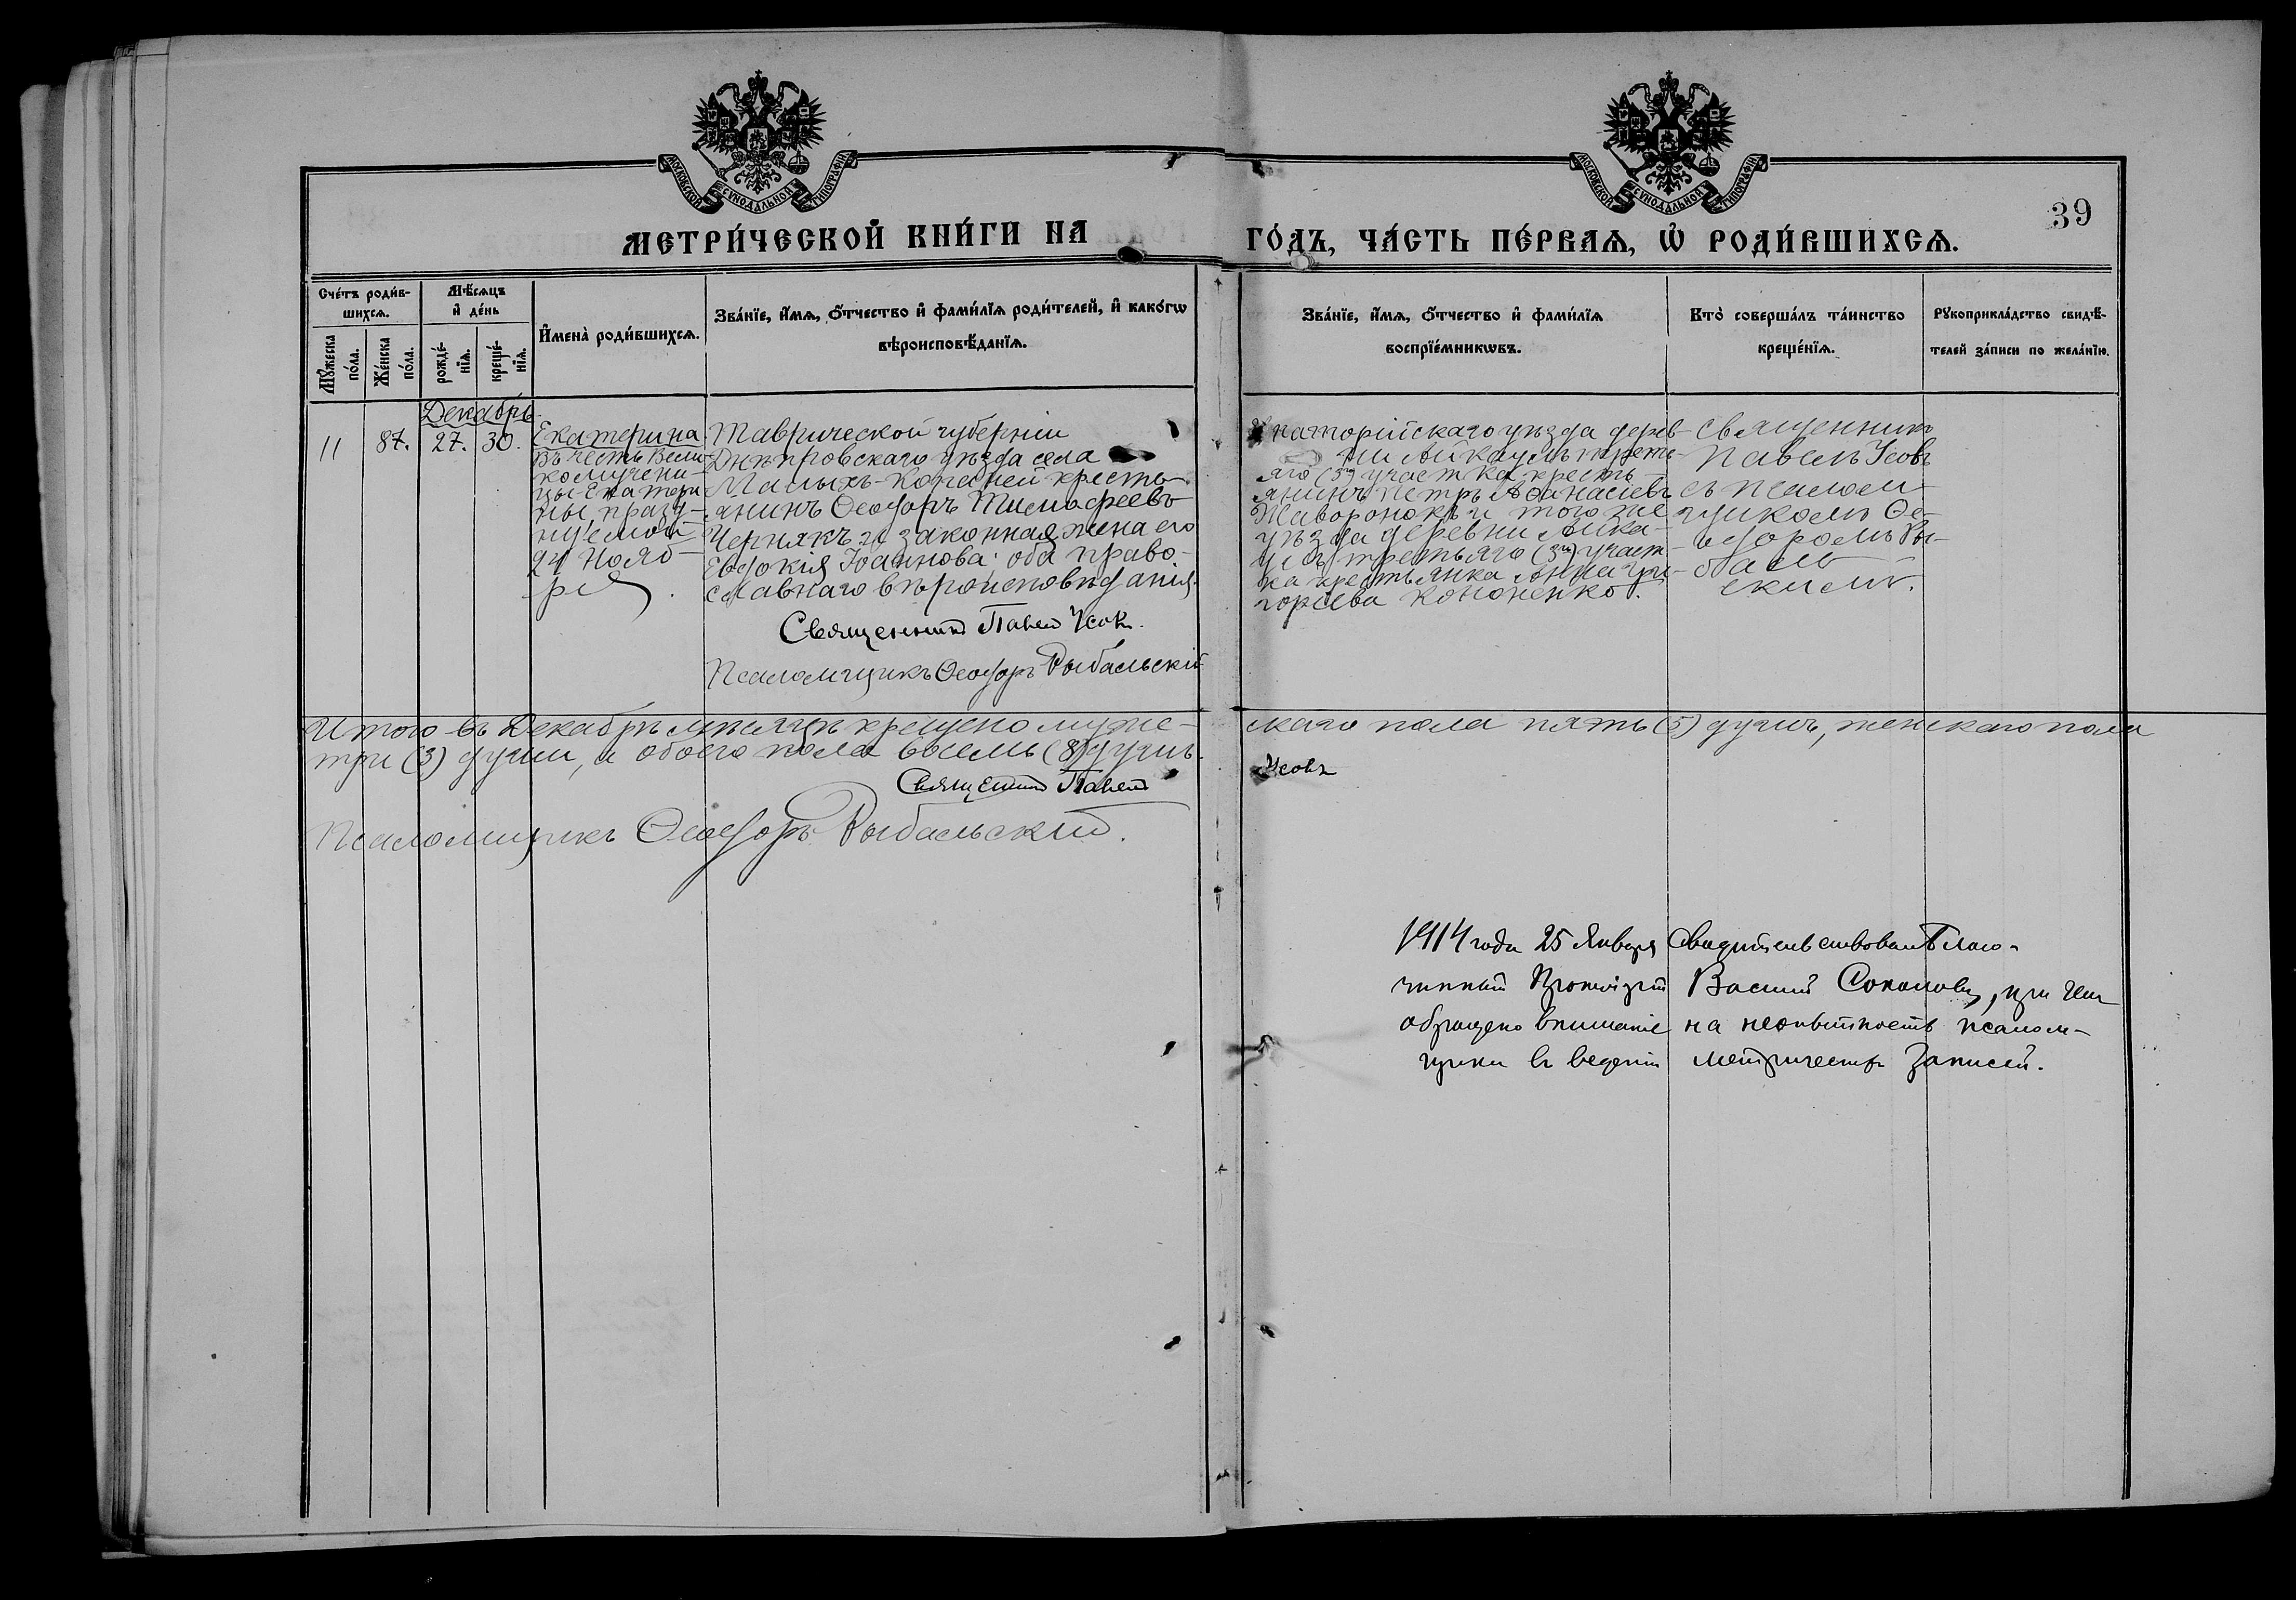 МОСКОВСКОЙ СѴНОДАЛЬНОЙ ТИПОГРАФІИ
МОСКОВСКОЙ СѴНОДАЛЬНОЙ ТИПОГРАФІИ
39
МЕТРИ́ЧЕСКОЙ КНИ́ГИ НА ГО́ДЪ, ЧА́СТЬ ПЕ́РВАѦ, Ѡ РОДИ́ВШИХСѦ.
Сче́тъ роди́в-
шихсѧ.
Мꙋ́жеска
по́ла.
Же́нска
по́ла.
Мѣ́сѧцъ
и҆ де́нь
рожде́-
нїѧ.
креще́-
нїѧ.
И҆мена̀ роди́вшихсѧ.
Зва́нїе, и҆́мѧ, ѻ҆́тчество и҆ фами́лїѧ роди́телей, и҆ како́гѡ
вѣроисповѣ́данїѧ.
Зва́нїе, и҆́мѧ, ѻ҆́тчество и҆ фами́лїѧ
воспрїе́мникѡвъ.
Кто̀ соверша́лъ та́инство
креще́нїѧ.
Рꙋкоприкла́дство свидѣ́-
телей за́писи по жела́нїю.
Декабрь.
11
87.
27.
30.
Екатерина
Въ честь Вели-
комучени-
цы Екатери
ны празд-
нуемой
24 Нояб-
ря.
Таврической губерніи
Днѣпровскаго уѣзда села
Малыхъ-Копаней кресть-
янинъ Ѳеодоръ Тимофеевъ
Чернякъ и законная жена его
Евдокія Іоаннова: оба право-
славнаго вѣроисповѣданія.
Священникъ Павелъ Усовъ.
Псаломщикъ Ѳеодоръ Рыбальскій
Евпаторійскаго уѣзда дерев-
ни Айкаулъ треть-
яго (3го) участка кресть-
янинъ Петръ Аѳанасіевъ
Жаворонокъ и того же
уѣзда деревни Айка-
улъ третьяго (3го) участ-
ка крестьянка Анна Гри-
горіева Кононенко.
Священникъ
Павелъ Усовъ
съ псалом-
щикомъ Ѳе-
одоромъ Ры-
баль
скимъ.
Итого въ Декабрѣ мѣсяцѣ крещено муже- скаго пола пять (5) душъ, женскаго пола
три (3) души, а обоего пола восемь (8) душъ.
Священникъ Павелъ Усовъ
Псаломщикъ Ѳеодоръ Рыбальскій.
1914 года 25 Января Свидѣтельствовалъ Благо-
чинный Протоіерей Василій Соколовъ, при чемъ
обращено вниманіе на неопытность псалом-
щика въ веденіи метрическихъ записей.